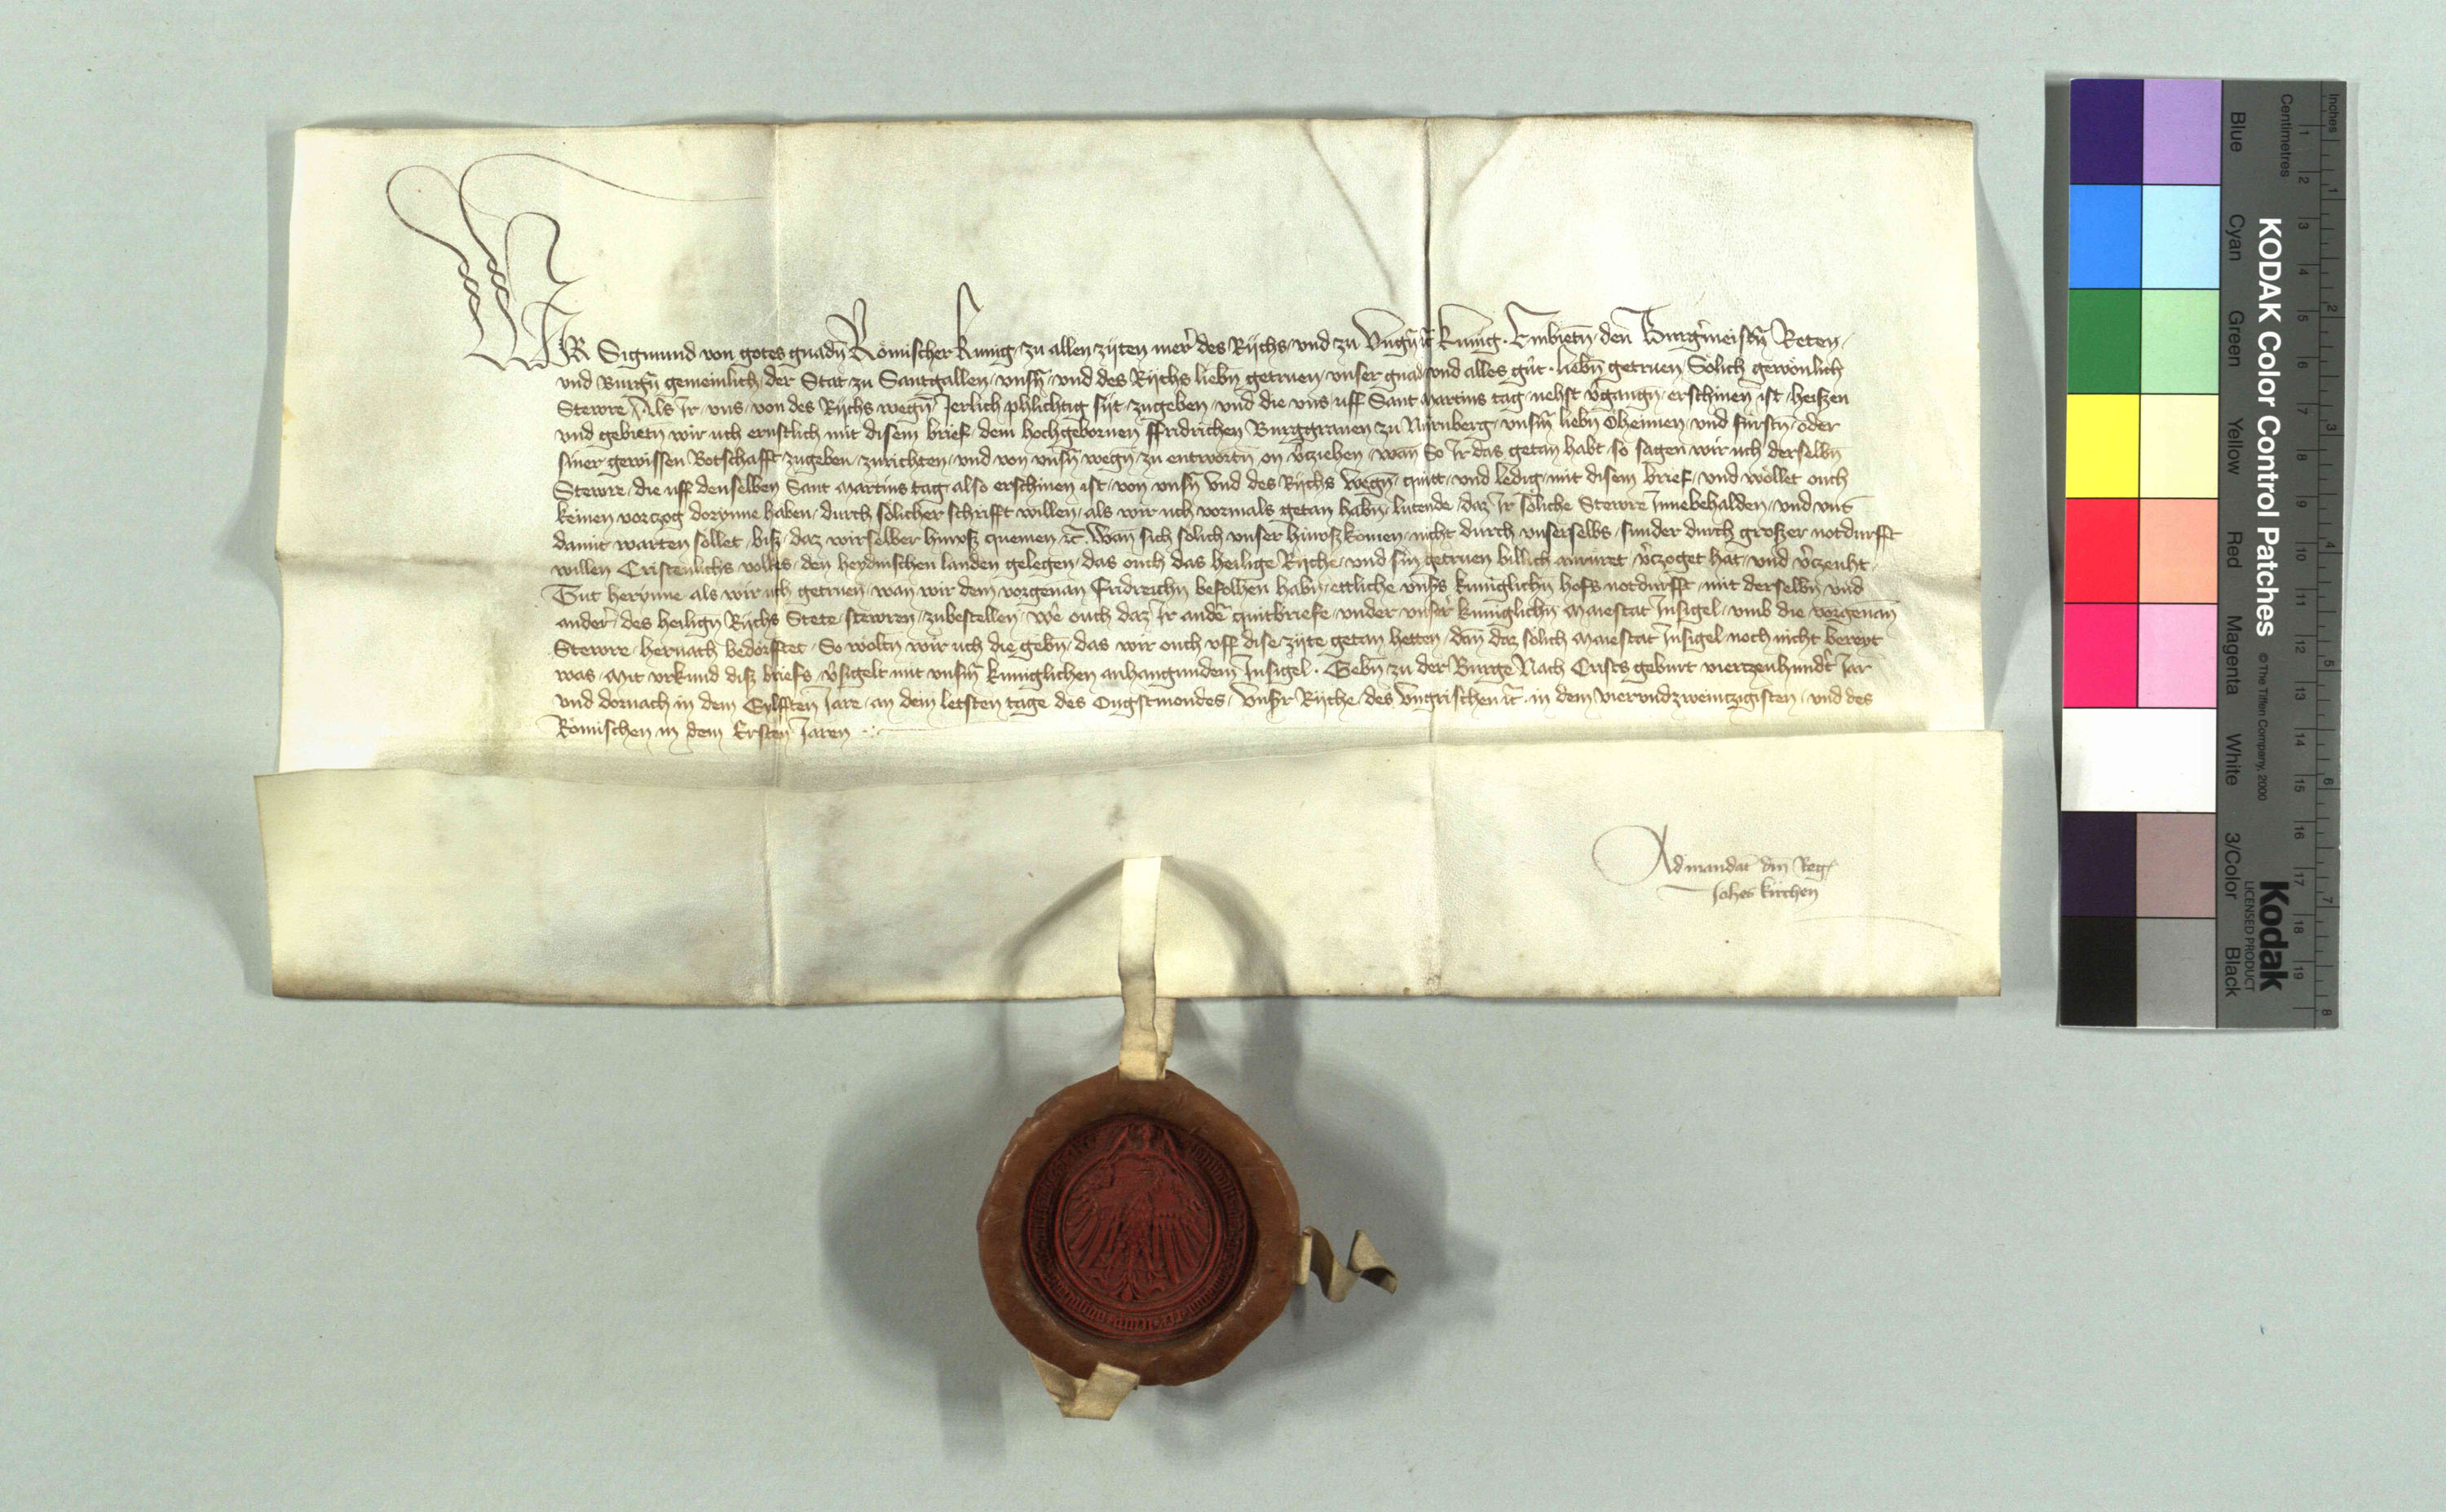 WIR Sigmund von gotes gnadn̄ Römischer kunig zu allen zijten merer des Rijchs vnd zu Vngn̄ ꝛc̄ kunig. Embietn̄ den Burgermeistern̄ Reten
vnd Burgn̄ gemeinlich der Stat zu Santgallen vnsn̄ vnd des Rijchs liebn̄ getruen vnser gnad vnd alles gůt. liebn̄ getruen Sölich gewönlich
Stewre Als Ir vns von des Rijchs wegn̄ Jerlich phlichtig sijt zugeben vnd die vns uff Sant Martins tag nehst v̉gangn̄ erschinen ist heiszen
vnd gebietn̄ wir uch ernstlich mit disem brief dem hochgebornen ffridrichen Burggrauen zu Nŭrnberg vnsm̄ liebn̄ Oheimen vnd fürstn̄ oder
siner gewissen Botschafft zugeben zurichten vnd von vnsn̄ wegn̄ zu entwortn̄ on v̉cziehen wan̄ So Ir das getan habt so sagen wir uch derselbn̄
Stewre die uff denselben Sant Martins tag also erschinen ist von vnsn̄ vnd des Rijchs wegn̄ quitt vnd ledig mit disem brief vnd wöllet ouch
keinen vorczog dorynne haben durch sölicher schrifft willen als wir uch vormals getan habn̄ lutende daz Ir söliche Stewre Innebehalden vnd vns
damit warten sollet bisz daz wir selber hinusz quemen ꝛc̄ Wan̄ sich sölich vnser hinuszkomen nicht durch vnserselbs sunder durch groszer notdurfft
willen Cristenlichs volkes den heydnischen landen gelegen das ouch das heilige Rijche vnd sin getruen billich anrüret v̉czoget hat vnd v̉czeuht
Tut herynne als wir uch getruen wan wir dem vorgenan̄ Fridreichn̄ befolhen habn̄ ettliche vnsꝰs kuniglichn̄ hofs notdurfft mit derselbn̄ vnd
ander des heilign̄ Rijchs Stete stewren zubestellen Wer ouch daz Ir andere quitbriefe vnder vnser kuniglichn̄ Maiestat Insigel vmb die vorgenan̄
Stewre hernach bedörfftet So woltn̄ wir uch die gebn̄ das wir ouch uff dise zijte getan hetten dan̄ daz sölich Maiestat Insigel noch nicht bereyt
was Mit vrkund disz briefs v̉sigelt mit vnsm̄ kuniglichen anhangundem Insigel. Gebn̄ zu der Burge Nach Crists geburt viertzenhundert Jar
vnd dornach in dem Eylfften Jare an dem letsten tage des Ougstmondes Vnsr̄ Rijche des Vngrischen ꝛc̄ in dem vierundzweintzigisten vnd des
Römischen in dem Ersten Jaren
Ad mandat̄ dn̄i Reḡ
Joh̄es kirchen
KODAK Color Control Patches
© The Tiffen Company, 2000
Kodak
LICENSED PRODUCT
Inches
Centimetres
Blue
Cyan
Green
Yellow
Red
Magenta
White
3/Color
Black
1 2 3 4 5 6 7 8 9 10 11 12 13 14 15 16 17 18 19
1 2 3 4 5 6 7 8